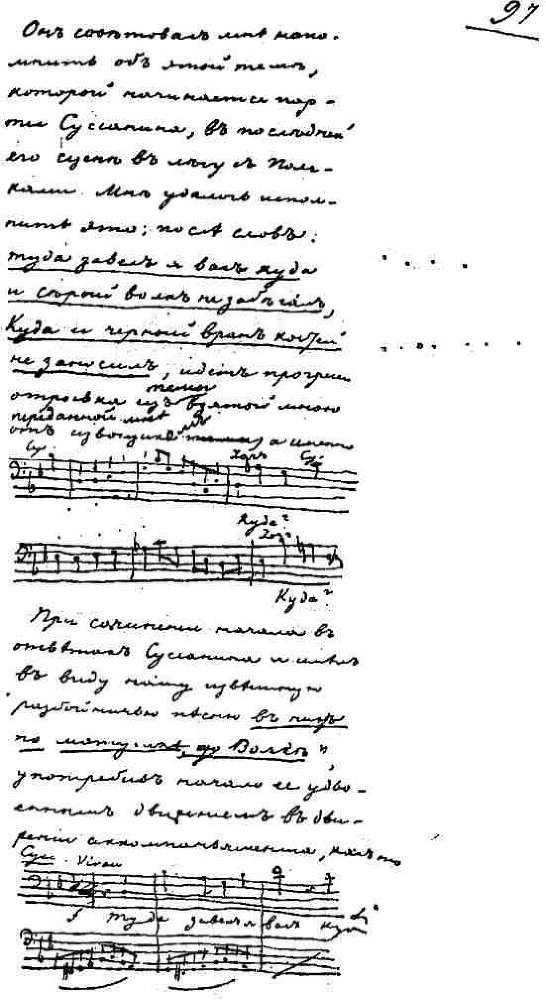 97
Онъ совѣтовалъ мнѣ напо-
мнить объ этой темѣ,
которой начинается пар-
тія Суссанина, въ послѣдней
его сценѣ въ лѣсу съ Поля-
ками. Мнѣ удалось испол-
нить это; послѣ словъ:
туда завелъ я васъ куда
и сѣрый волкъ не забѣгалъ,
Куда и черный вранъ костей
не заносилъ, идетъ прогрес
изъ темы взятой мною
переданной мнѣ
отъ извощика, а именно
Су.
Хоръ Сус.
Куда?
Хоръ
Куда?
При сочиненіи начала въ
отвѣтахъ Суссанина я имѣлъ
въ виду нашу извѣстную
разбойничью пѣсню въ низъ
по матушкѣ, по Волгѣ",
употребивъ начало ее удво-
еннымъ движеніемъ въ дви-
женіи аккомпанемента, какъ то
Сус. Vivace
f туда завелъ я васъ куда